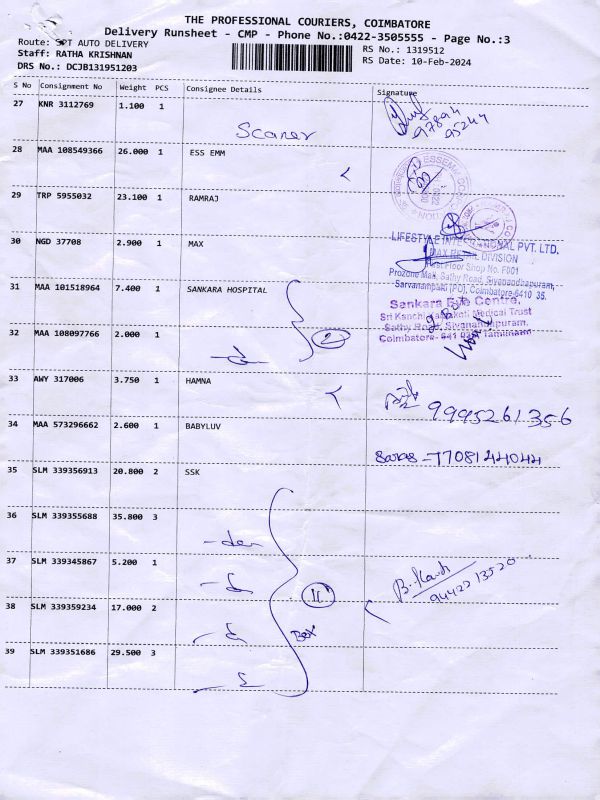 THE PROFESSIONAL COURIERS, COIMBATORE
Delivery Runsheet - CMP - Phone No.:0422-3505555 - Page No.:3
Route: SPT AUTO DELIVERY
Staff: RATHA KRISHNAN
DRS No.: DCJB131951203
RS No.: 1319512
RS Date: 10-Feb-2024
S No Consignment No Weight PCS Consignee Details Signature
27 KNR 3112769 1.100 1
97894
95244
28 MAA 108549366 26.000 1 ESS EMM
29 TRP 5955032 23.100 1 RAMRAJ
30 NGD 37708 2.900 1 MAX
LIFESTYLE INTERNATIONAL PVT. LTD.
MAX RETAIL DIVISION
First Floor Shop No. F001
Prozone Mall, Sathy Road, Sivanandhapuram,
Sarvanampatti [PO], Coimbatore-6410 35.
31 MAA 101518964 7.400 1 SANKARA HOSPITAL
Sankara Eye Centre,
Sri Kanchi Kamakoti Medical Trust
Sathy Road, Sivanandapuram,
Coimbatore- 641 035 Tamilnadu
32 MAA 108097766 2.000 1
2
33 AWY 317006 3.750 1 HAMNA
9995261356
34 MAA 573296662 2.600 1 BABYLUV
Saras - 7708144044
35 SLM 339356913 20.800 2 SSK
36 SLM 339355688 35.800 3
37 SLM 339345867 5.200 1
9442213520
38 SLM 339359234 17.000 2
11
Box
39 SLM 339351686 29.500 3